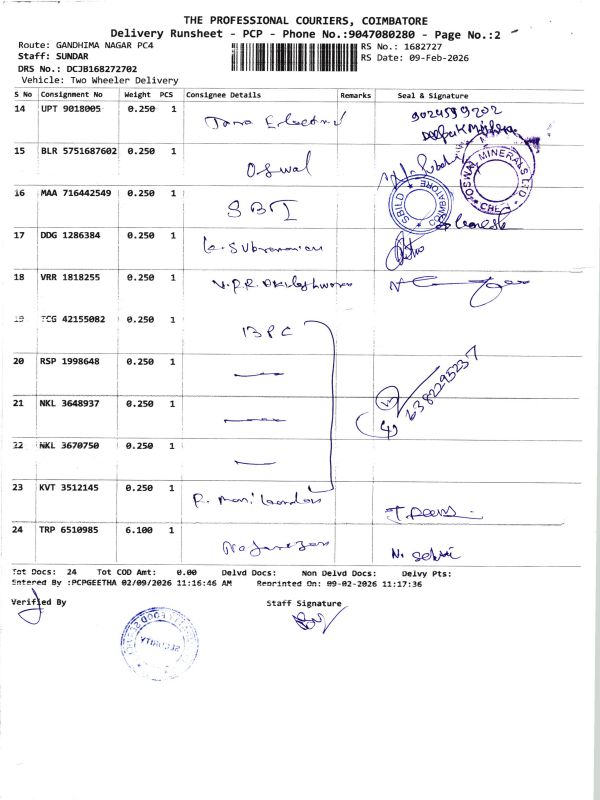 THE PROFESSIONAL COURIERS, COIMBATORE
Delivery Runsheet - PCP - Phone No.:9047080280 - Page No.:2
Route: GANDHIMA NAGAR PC4
RS No.: 1682727
Staff: SUNDAR
RS Date: 09-Feb-2026
DRS No.: DCJB168272702
Vehicle: Two Wheeler Delivery
S No Consignment No Weight PCS Consignee Details Remarks Seal & Signature
14 UPT 9018005 0.250 1 9024599202
15 BLR 5751687602 0.250 1 Oswal OSWAL MINERALS LTD
16 MAA 716442549 0.250 1 SBI SBILD COIMBATORE
17 DDG 1286384 0.250 1
18 VRR 1818255 0.250 1 V.P.R.
19 TCG 42155082 0.250 1 BPC
20 RSP 1998648 0.250 1 6382295237
21 NKL 3648937 0.250 1
22 NKL 3670750 0.250 1
23 KVT 3512145 0.250 1
24 TRP 6510985 6.100 1
Tot Docs: 24 Tot COD Amt: 0.00 Delvd Docs: Non Delvd Docs: Delvy Pts:
Entered By :PCPGEETHA 02/09/2026 11:16:46 AM Reprinted On: 09-02-2026 11:17:36
Verified By Staff Signature
SECURITY